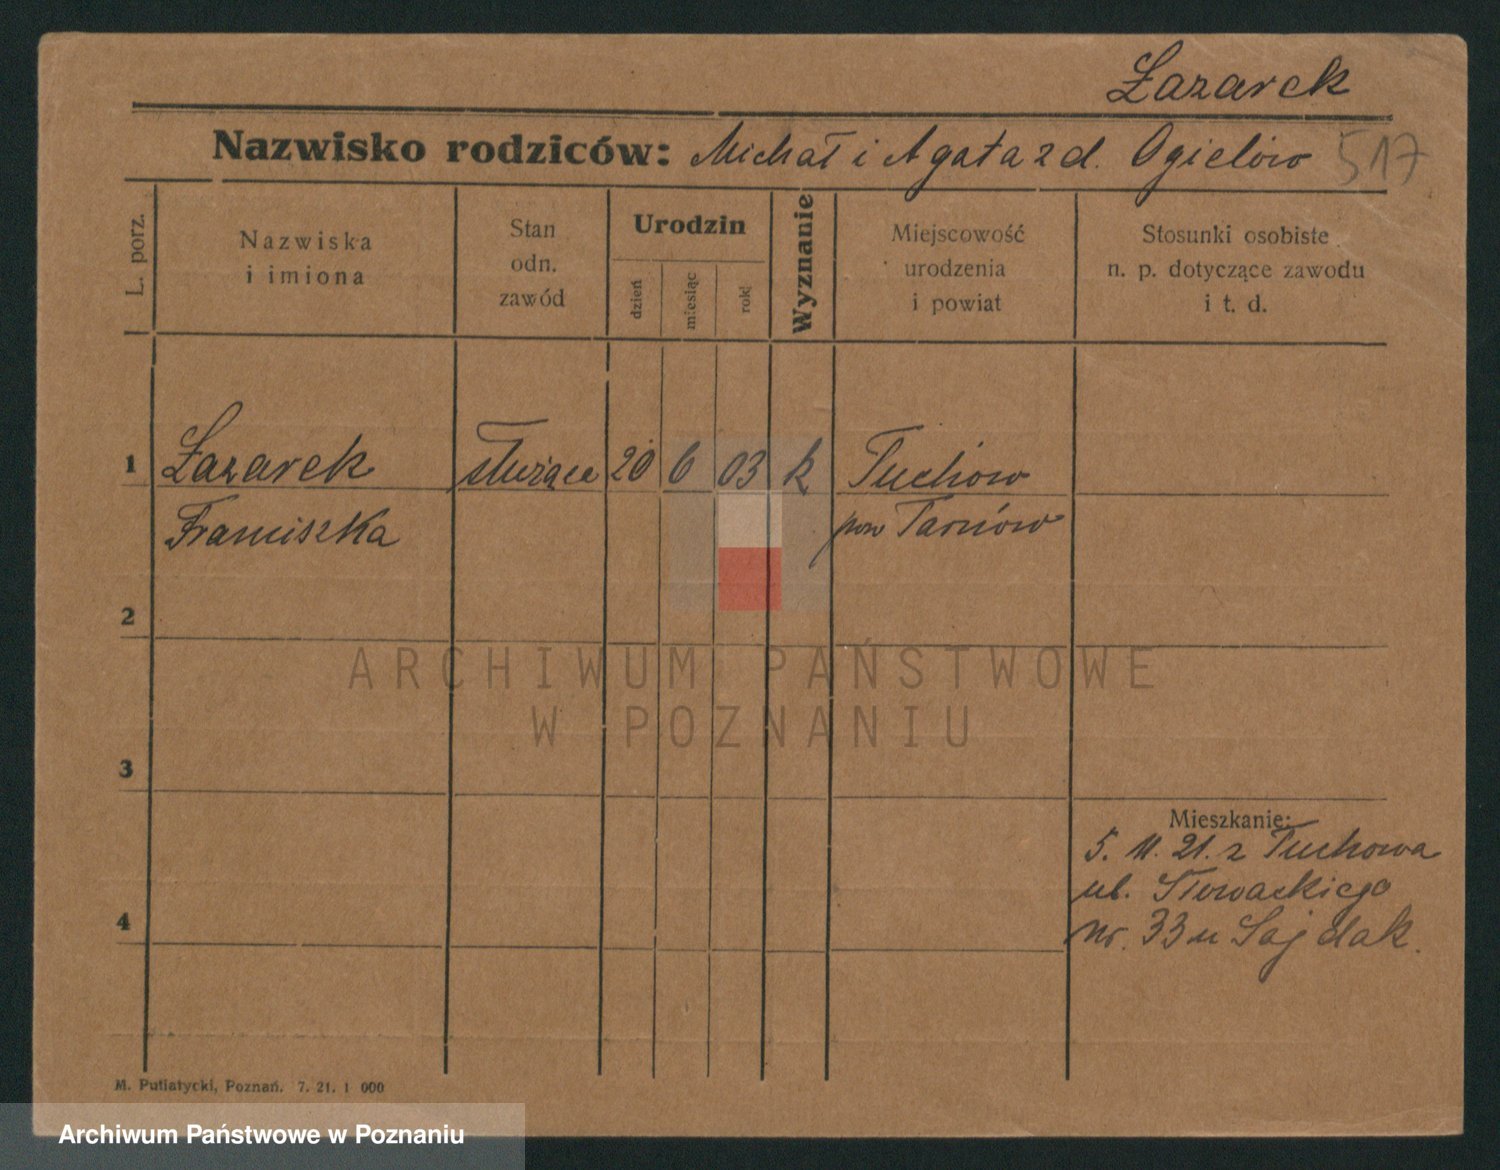 Łazarek
Nazwisko rodziców: Michał i Agata z d. Ogielów 517
L. porz.
Nazwiska
i imiona
Stan
odn.
zawód
Urodzin
dzień
miesiąc
rok
Wyznanie
Miejscowość
urodzenia
i powiat
Stosunki osobiste
n. p. dotyczące zawodu
i t. d.
1 Łazarek służąca 20 6 03 k Tuchów
Franciszka pow Tarnów
2
ARCHIWUM PAŃSTWOWE
W POZNANIU
3
Mieszkanie:
5. 11. 21. z Tuchowa
ul. Słowackiego
4
nr. 33 u Sajdak.
M. Putiatycki, Poznań. 7. 21. 1 000
Archiwum Państwowe w Poznaniu